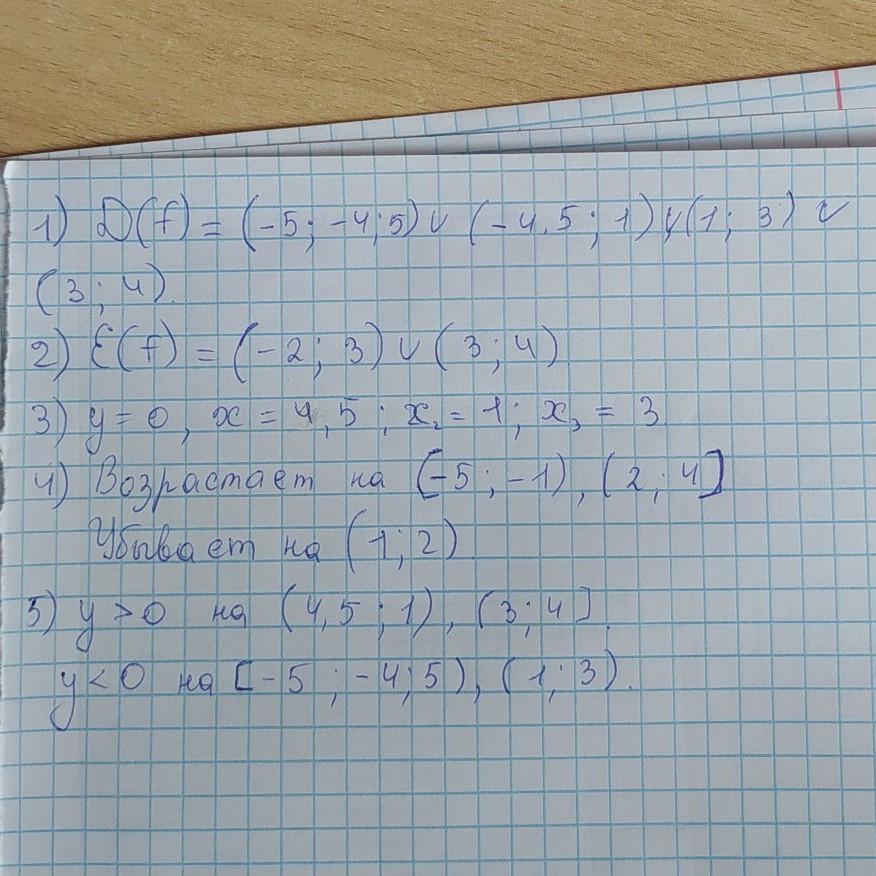 1) D(f) = (-5; -4;5) ∪ (-4,5; 1) ∪ (1; 3) ∪
(3; 4).
2) E(f) = (-2; 3) ∪ (3; 4)
3) y = 0, x = 4,5; x₂ = 1; x₃ = 3
4) Возрастает на [-5; -1), (2; 4]
Убывает на (1; 2)
5) y > 0 на (4,5; 1), (3; 4].
y < 0 на [-5; -4;5), (1; 3).